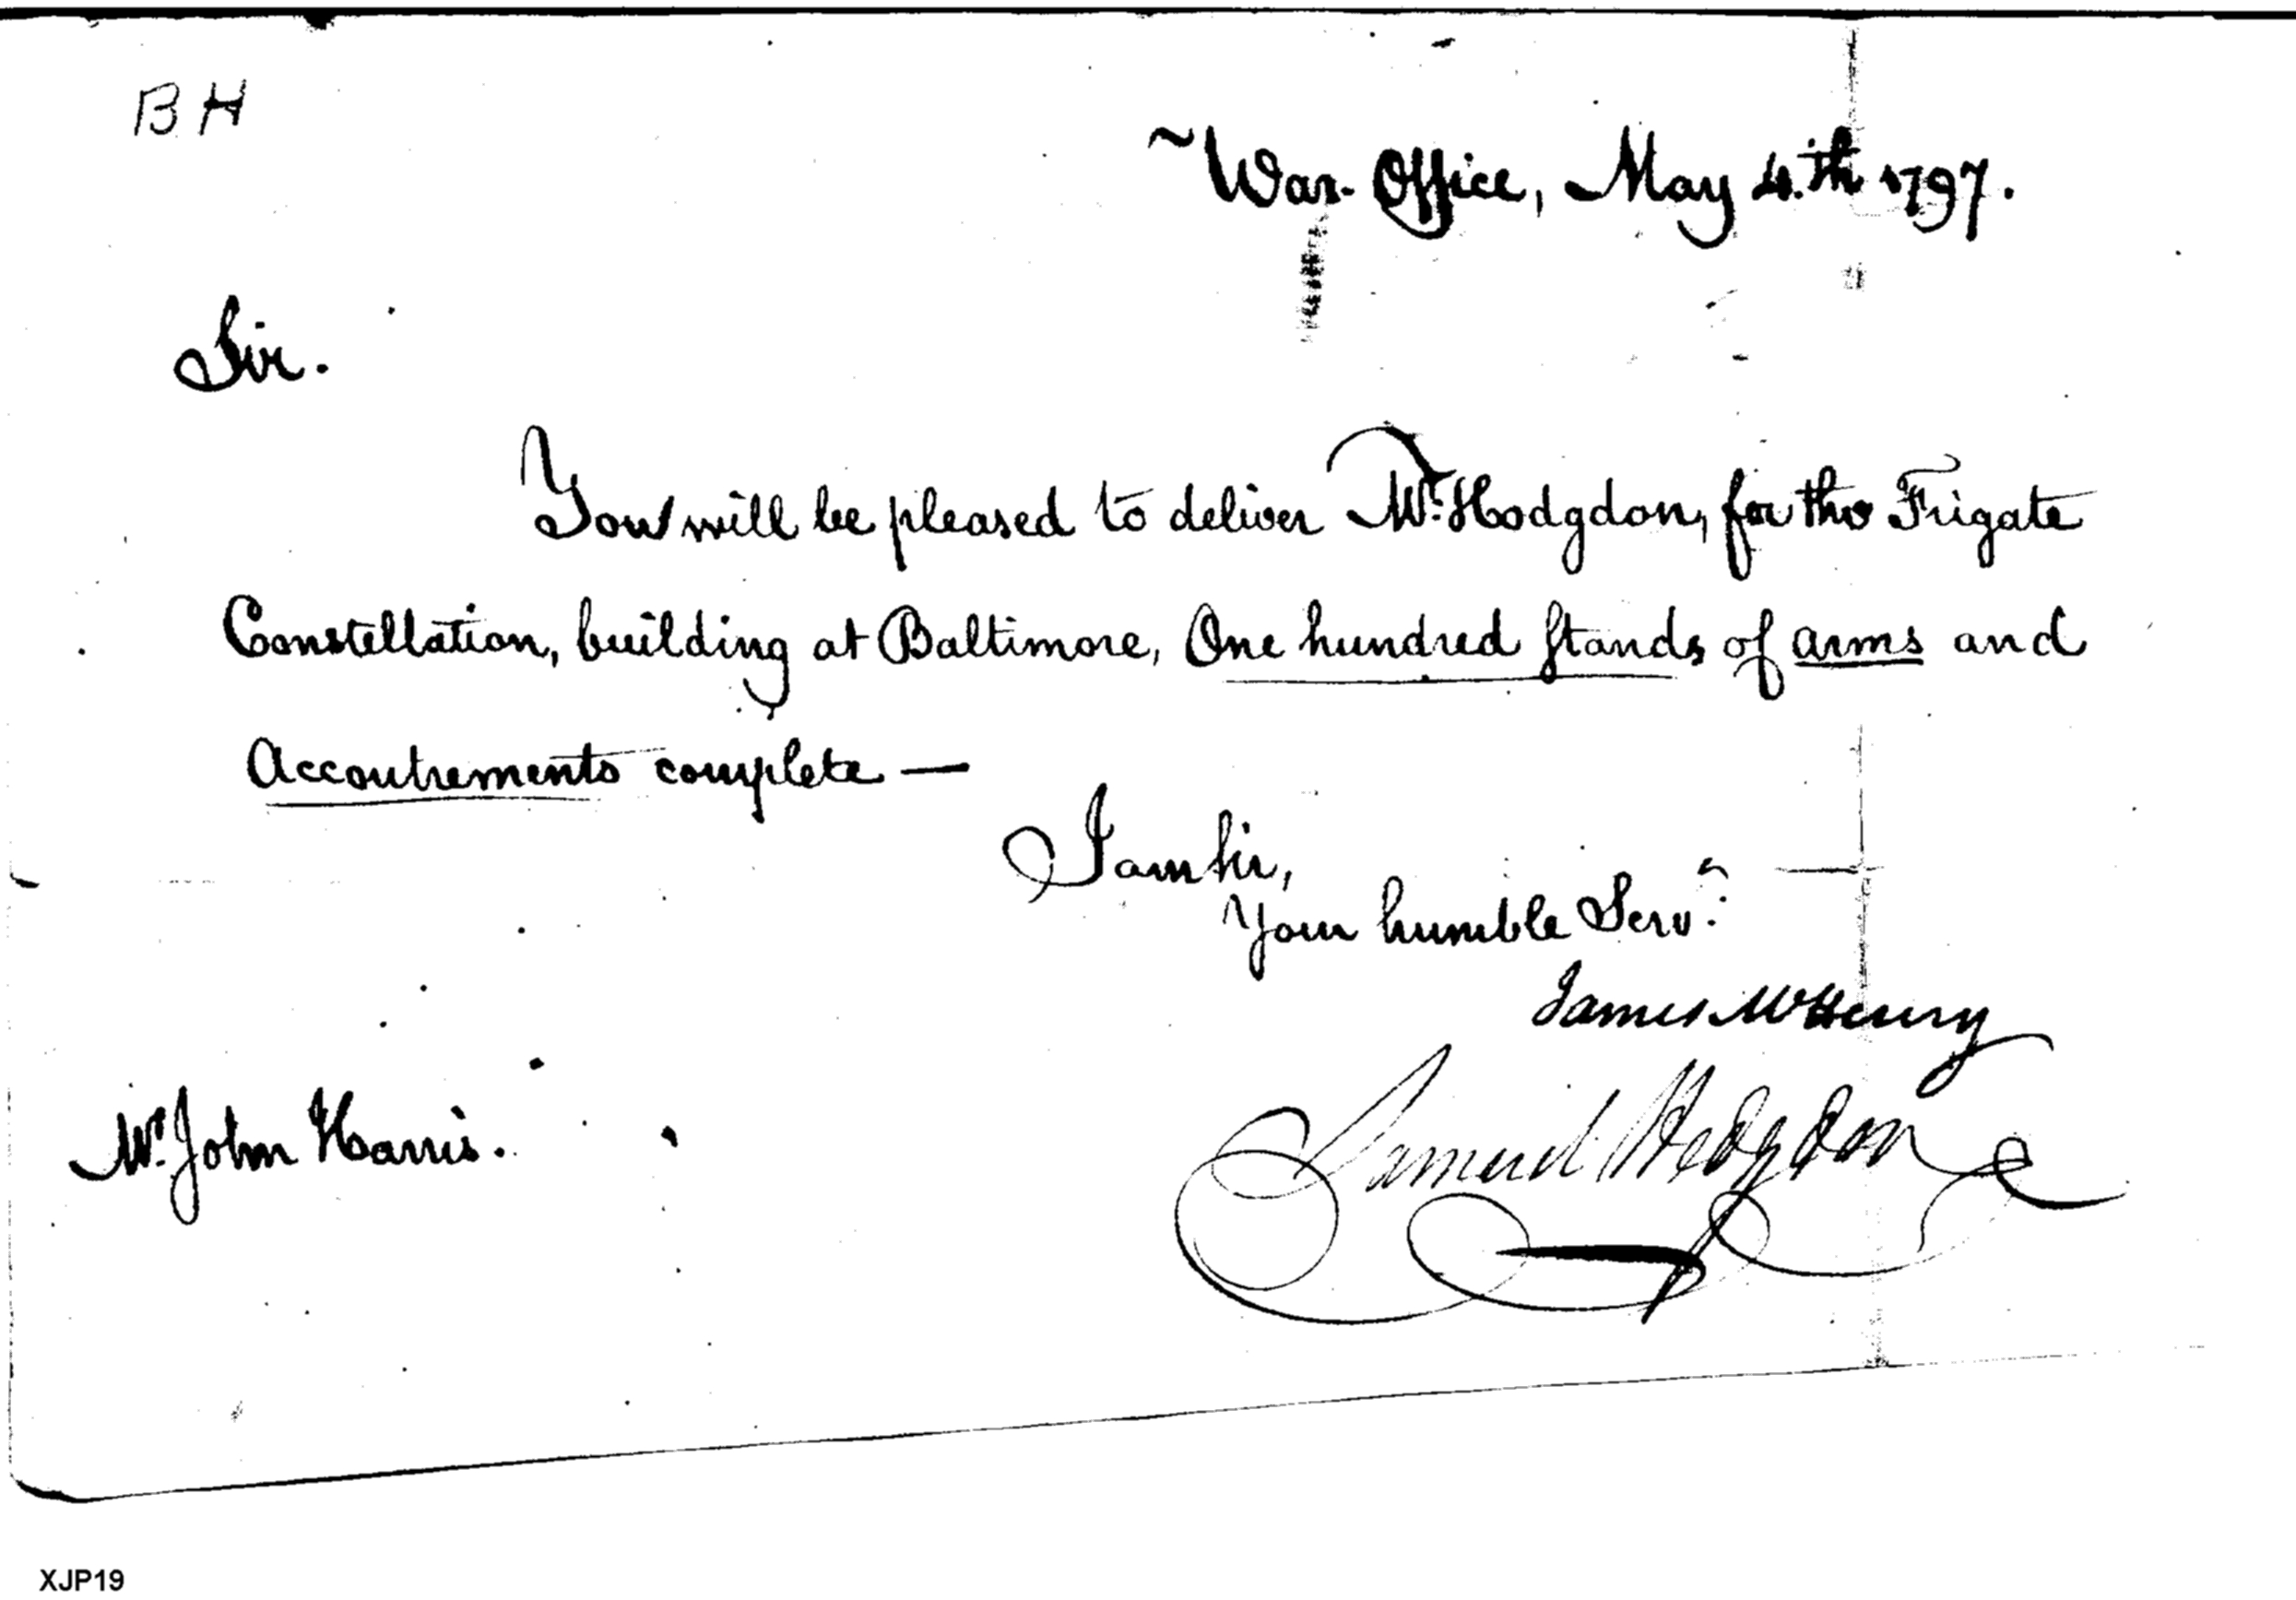 BH
War Office, May 4.th 1797.
Sir.
You will be pleased to deliver Mr. Hodgdon, for the Frigate
Constellation, building at Baltimore, One hundred Stands of arms and
Accoutrements complete —
I am Sir,
Your humble Serv.t
James McHenry
Samuel Hodgdon
Mr. John Harris.
XJP19